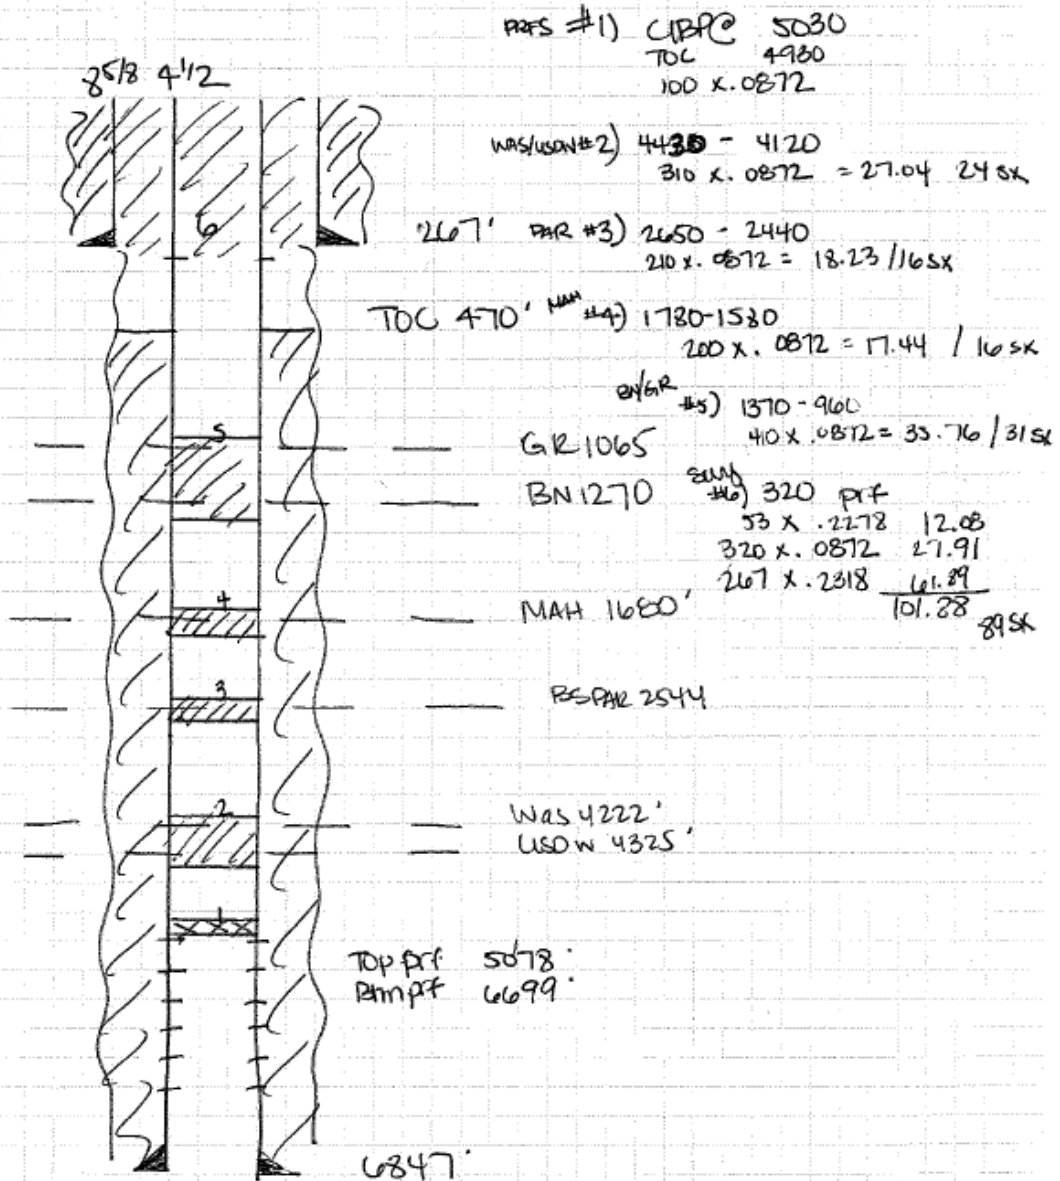 PRFS #1) CIBP@ 5030
TOC 4930
100 x .0872
8 5/8 4 1/2
WAS/USDW #2) 4430 - 4120
310 x .0872 = 27.04 24 sx
267' PAR #3) 2650 - 2440
210 x .0872 = 18.23 / 16 sx
6
TOC 470' MAH #4) 1780-1580
200 x .0872 = 17.44 / 16 sx
BN/GR #5) 1370-960
410 x .0872 = 35.76 / 31 sx
5
GR 1065
BN 1270
Surf #6) 320 prf
53 x .2278 12.08
320 x .0872 27.91
267 x .2318 61.89
101.88
89 sx
4
MAH 1680'
3
BSPAR 2544
2
Was 4222'
USDW 4325'
1
Top prf 5078'
Btm pf 6699'
6847'